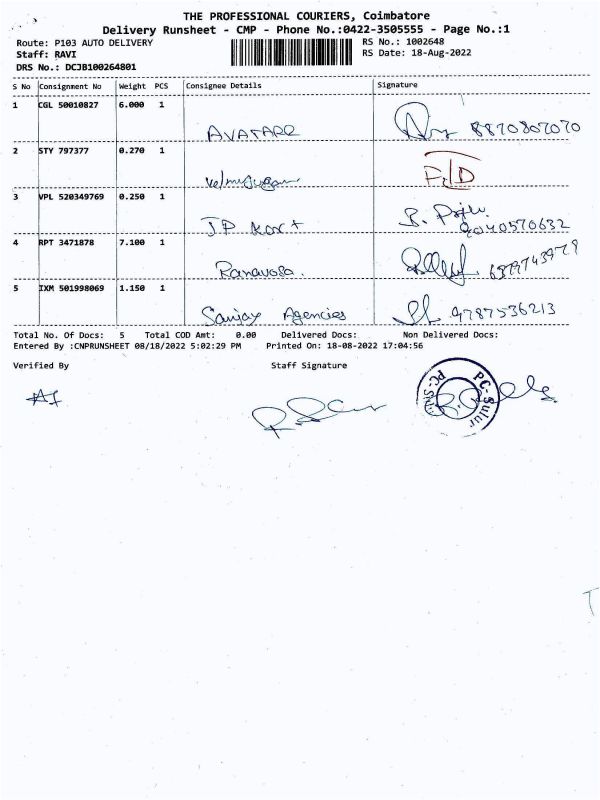 THE PROFESSIONAL COURIERS, Coimbatore
Delivery Runsheet - CMP - Phone No.:0422-3505555 - Page No.:1
Route: P103 AUTO DELIVERY RS No.: 1002648
Staff: RAVI RS Date: 18-Aug-2022
DRS No.: DCJB100264801
S No Consignment No Weight PCS Consignee Details Signature
1 CGL 50010827 6.000 1
AVATARR 8870807070
2 STY 797377 0.270 1
Velmurugan
3 VPL 520349769 0.250 1
JP Kart 9040570632
4 RPT 3471878 7.100 1
5 IXM 501998069 1.150 1
Sanjay Agencies 9787536213
Total No. Of Docs: 5 Total COD Amt: 0.00 Delivered Docs: Non Delivered Docs:
Entered By :CNPRUNSHEET 08/18/2022 5:02:29 PM Printed On: 18-08-2022 17:04:56
Verified By Staff Signature
PC-Sulur